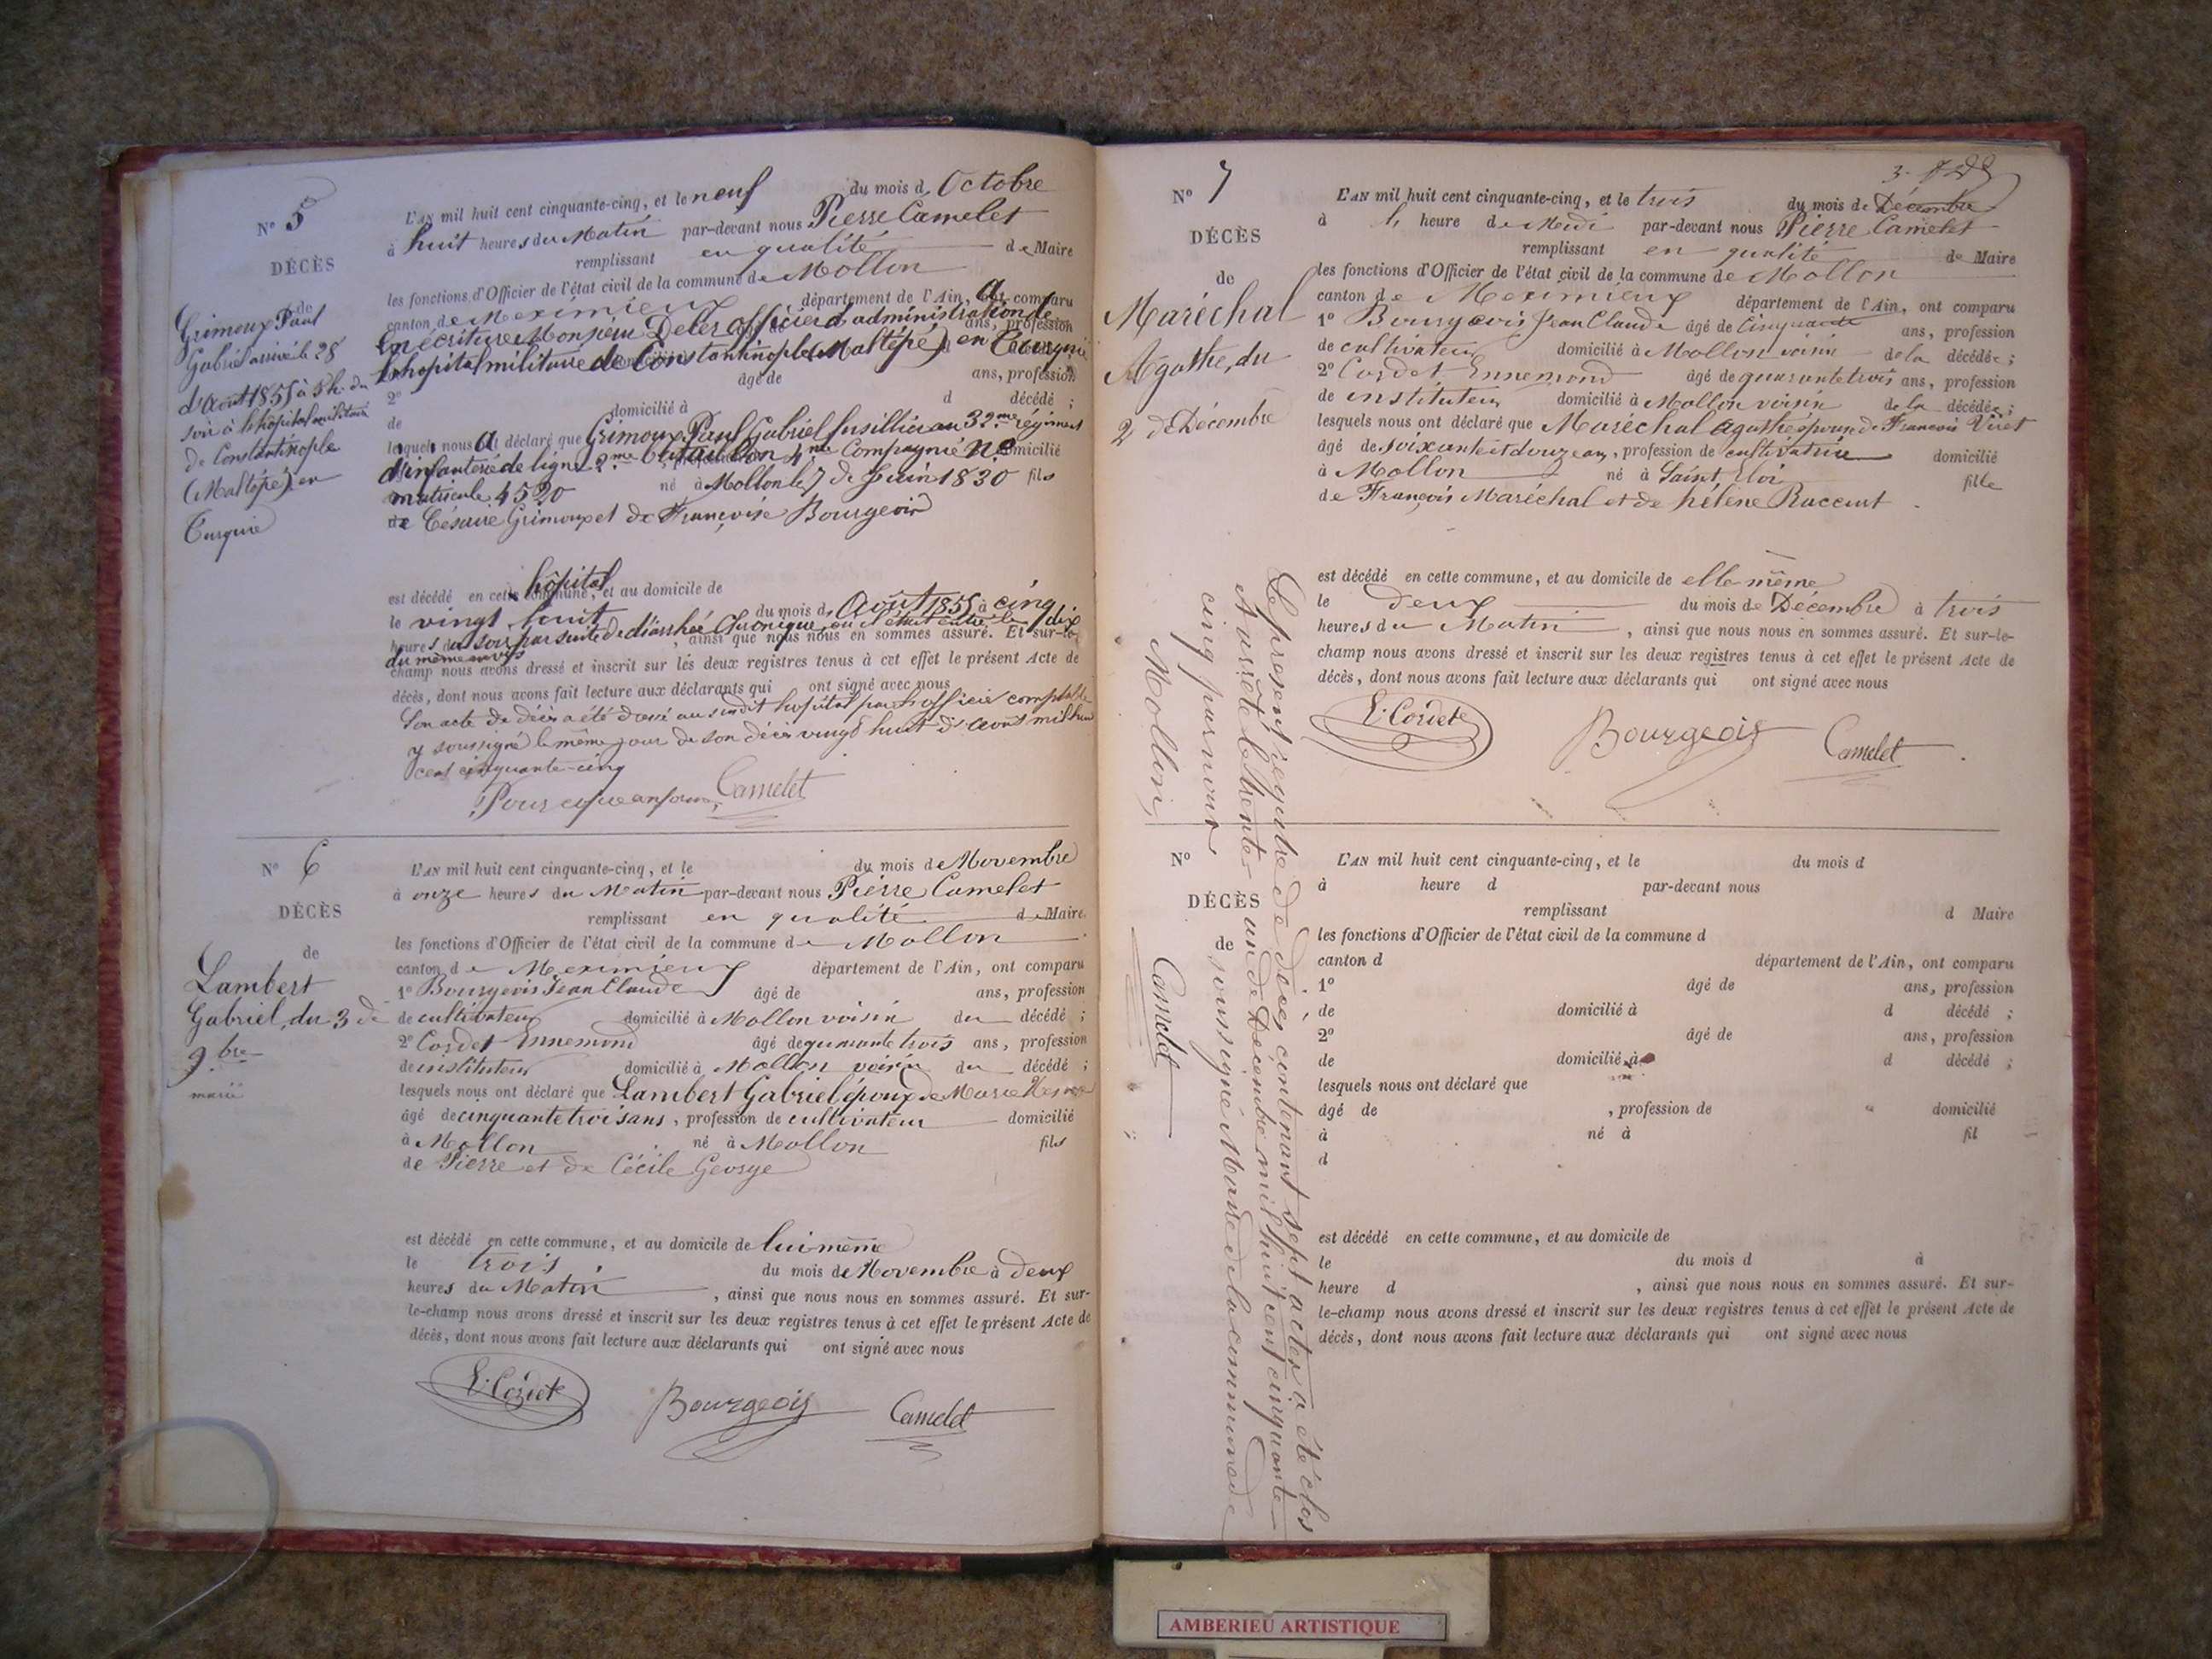 N° 5
DÉCÈS
de
Grimoux Paul
Gabriel arrivé le 28
d'Août 1855 à 5 h. du
soir à l'hôpital militaire
de Constantinople
(Maltépé) en
Turquie
L'AN mil huit cent cinquante-cinq, et le neuf du mois d Octobre
à huit heures du Matin par-devant nous Pierre Camelet
remplissant en qualité de Maire
les fonctions d'Officier de l'état civil de la commune de Mollon
canton de Meximieux département de l'Ain, a comparu
en écriture Monsieur officier d'administration de ans, profession
l'hôpital militaire de Constantinople (Maltépé) en Turquie
2° âgé de ans, profession
de domicilié à d décédé ;
lesquels nous a déclaré que Grimoux Paul Gabriel fusillier au 32me régiment
d'infanterie de ligne 2me bataillon 4me Compagnie N° domicilié
matricule 4520 né à Mollon le 7 de Juin 1830 fils
de Césaire Grimoux et de Françoise Bourgeois
est décédé en cette hôpital commune, et au domicile de
le vingt huit du mois d Août 1855 à cinq
heures du soir par suite de diarrhée Chronique, où il était entré le dix
du même mois , ainsi que nous nous en sommes assuré. Et sur-le-
champ nous avons dressé et inscrit sur les deux registres tenus à cet effet le présent Acte de
décès, dont nous avons fait lecture aux déclarants qui ont signé avec nous
Son acte de décès a été dressé au susdit hôpital par l'officier comptable
y soussigné le même jour de son décès vingt huit d'août mil huit
cent cinquante-cinq
Pour copie conforme, Camelet
N° 6
DÉCÈS
de
Lambert
Gabriel, du 3 de
9bre
marié
L'AN mil huit cent cinquante-cinq, et le du mois de Novembre
à onze heures du Matin par-devant nous Pierre Camelet
remplissant en qualité de Maire
les fonctions d'Officier de l'état civil de la commune de Mollon
canton de Meximieux département de l'Ain, ont comparu
1° Bourgeois Jean Claude âgé de ans, profession
de cultivateur domicilié à Mollon voisin du décédé ;
2° Cordet Ennemond âgé de quarante trois ans, profession
de instituteur domicilié à Mollon voisin du décédé ;
lesquels nous ont déclaré que Lambert Gabriel époux de Marie
âgé de cinquante trois ans, profession de cultivateur domicilié
à Mollon né à Mollon fils
de Pierre et de Cécile George
est décédé en cette commune, et au domicile de lui même
le trois du mois de Novembre à deux
heures du Matin , ainsi que nous nous en sommes assuré. Et sur-
le-champ nous avons dressé et inscrit sur les deux registres tenus à cet effet le présent Acte de
décès, dont nous avons fait lecture aux déclarants qui ont signé avec nous
E. Cordet Bourgeois Camelet
N° 7
DÉCÈS
de
Maréchal
Agathe, du
2 de Décembre
L'AN mil huit cent cinquante-cinq, et le trois du mois de Décembre
à heure de Midi par-devant nous Pierre Camelet
remplissant en qualité de Maire
les fonctions d'Officier de l'état civil de la commune de Mollon
canton de Meximieux département de l'Ain, ont comparu
1° Bourgeois Jean Claude âgé de Cinquante ans, profession
de cultivateur domicilié à Mollon voisin de la décédée ;
2° Cordet Ennemond âgé de quarante trois ans, profession
de instituteur domicilié à Mollon voisin de la décédée ;
lesquels nous ont déclaré que Maréchal Agathe épouse de François Viret
âgé de soixante et douze ans, profession de cultivatrice domicilié
à Mollon né à Saint Eloi fille
de François Maréchal et de hélène Raccurt
est décédé en cette commune, et au domicile de elle même
le deux du mois de Décembre à trois
heures du Matin , ainsi que nous nous en sommes assuré. Et sur-le-
champ nous avons dressé et inscrit sur les deux registres tenus à cet effet le présent Acte de
décès, dont nous avons fait lecture aux déclarants qui ont signé avec nous
E. Cordet Bourgeois Camelet
Le présent registre de décès contenant sept actes a été clos
et arrêté le trente un de Décembre mil huit cent cinquante
cinq par nous soussigné Maire de la commune de
Mollon, Camelet
N°
DÉCÈS
de
L'AN mil huit cent cinquante-cinq, et le du mois d
à heure d par-devant nous
remplissant d Maire
les fonctions d'Officier de l'état civil de la commune d
canton d département de l'Ain, ont comparu
1° âgé de ans, profession
de domicilié à d décédé ;
2° âgé de ans, profession
de domicilié à d décédé ;
lesquels nous ont déclaré que
âgé de , profession de domicilié
à né à fil
d
est décédé en cette commune, et au domicile de
le du mois d à
heure d , ainsi que nous nous en sommes assuré. Et sur-
le-champ nous avons dressé et inscrit sur les deux registres tenus à cet effet le présent Acte de
décès, dont nous avons fait lecture aux déclarants qui ont signé avec nous
AMBERIEU ARTISTIQUE